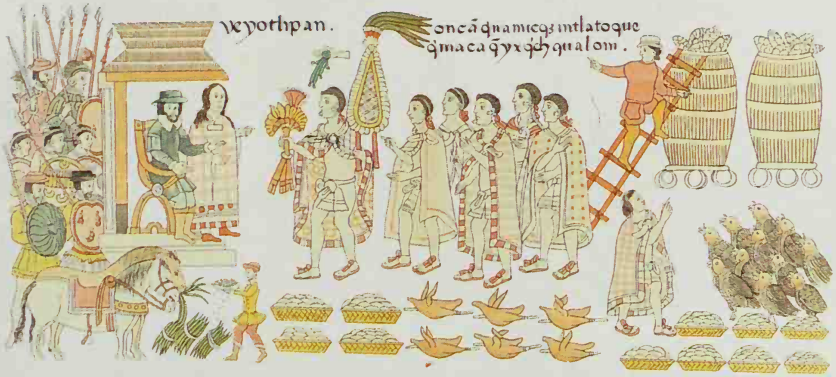 veyotlipan.
oncā q̄namicqȝ intlatoque
q̄maca q̄yxq̄ch qualom.